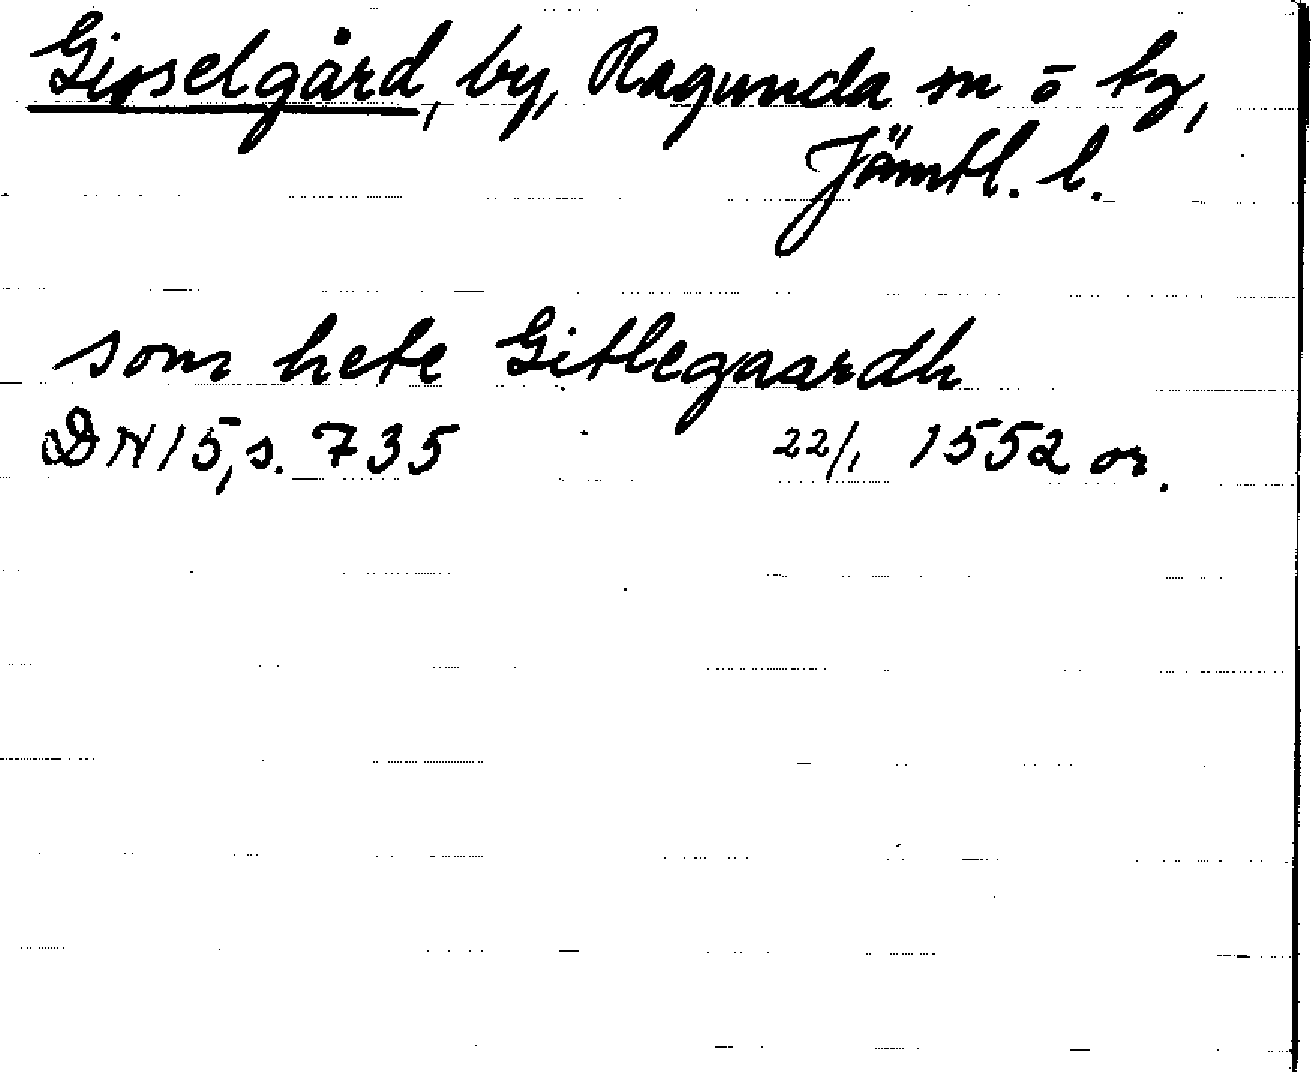 Gisselgård, by, Ragunda sn o tg,
Jämtl. l.
som hete Gitlegaardh
DN 15, s. 735 22/1 1552 or.